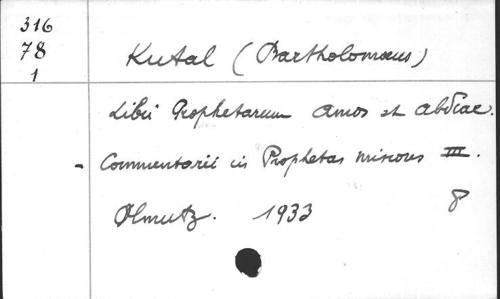 316
78
1
Kutal (Bartholomaeus)
Libri Prophetarum Amos et Abdiae.
- Commentarii in Prophetas minores III.
Olmutz. 1933 8